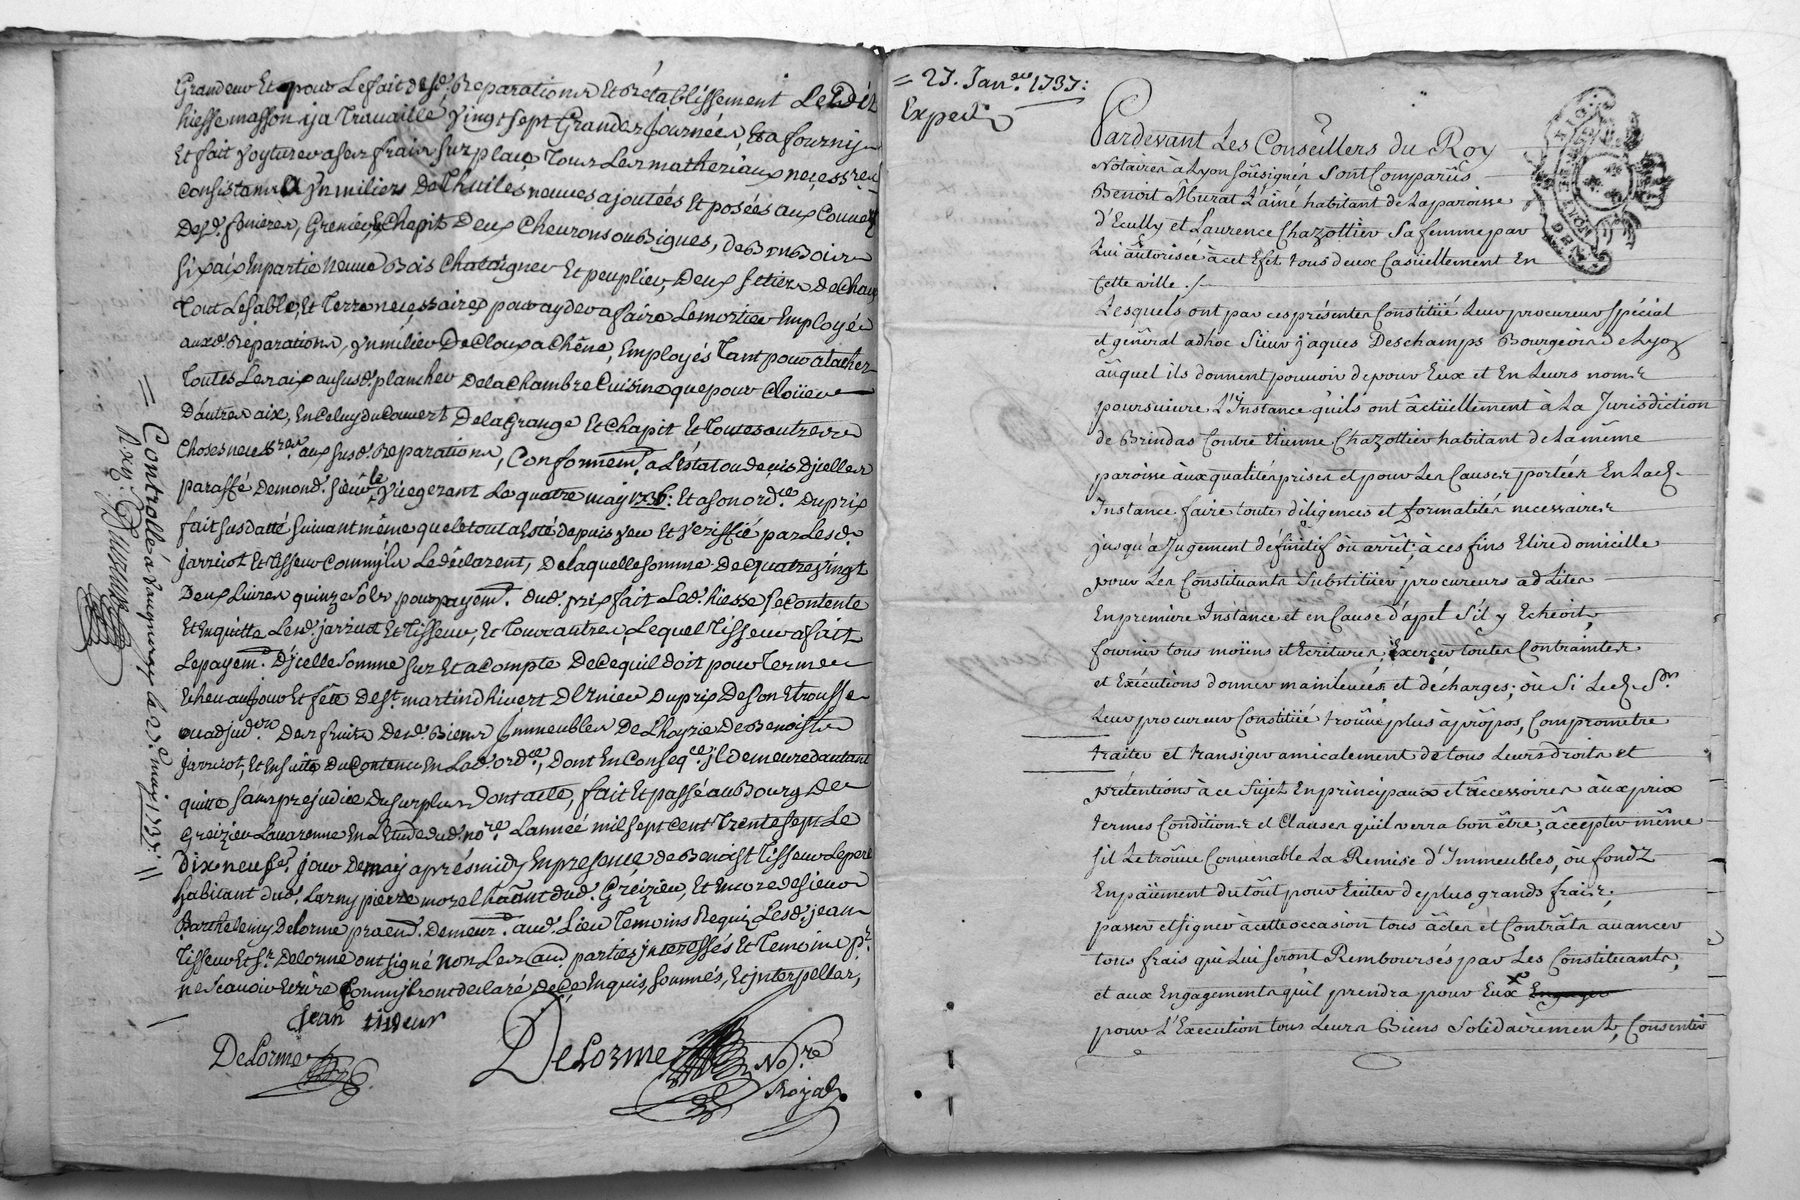 Grandeur Et pour Le fait desd. Reparations Et Rétablissement Led. dit
hiesse masson ija Travaillé Vingt sept Grandes Journées, Et a fourny
Et fait Voyturer a ses frais sur place Tous Les matheriaux necess.res
Consistans a Un miliers De Thuiles neuves ajoutées Et posées aux Couverts
Desd. fenieres, Grenier, & Chapit Deux Cheurons ou Bigues, de Bon Bois
six aix En partie Neuve Bois Chataigner Et peuplier, Deux setiers De Chaux
Tout Le sable, Et Terre necessaires pour ayder a faire Le mortier Employé
auxd. Reparations, Un milier De Cloux a Chêne, Employés Tant pour atacher
Toutes Les aix au susd. plancher De la Chambre Cuisine que pour Cloüer
D'autres aix, En Celuy du Couvert De la Grange Et Chapit Et Toutes autres
Choses necess.res aux susd. Reparations, Conformem.t a L'état ou devis D'jcelles
paraffé De mond. sieur le Vicegerant Le quatre may 1736. Et a son ord.ce Du prix
fait susdatté suivant même que le tout a Esté depuis veu Et Veriffié par Lesd.
jarricot Et Tisseur Comm'ils Le déclarent, De laquelle somme De quatre Vingt
Deux Livres quinze sols pour payem.t dud. prix fait Led. hiesse se Contente
Et En quitte Lesd. jarricot Et Tisseur, Et Tous autres, Lequel Tisseur a fait
Le payem.t D'jcelle somme sur Et a Compte De Ce qu'il doit pour Terme
Echeu au jour Et fête De St. martin d'hivert Dernier Du prix De son
ou adjud.on Des fruits Desd. Biens Jmmeubles De L'hoyrie De Benoist
Jarricot, Et Ensuite Du Contenu En Lad. ord.ce, Dont En Conseq.ce jl demeure d'autant
quitte sans prejudice Du surplus Dont acte, fait Et passé au Bourg De
Greizieu Lavarenne En L'Etude dud. no.re L'année mil sept Cent Trente sept Le
Dix neuf.e jour De may aprés midy En presence de Benoist Tisseur Le pere
habitant dud. Larny pierre morel ha.ant dud. Greizieu, Et Encore de sieur
Barthelemy Delorme pra.en Demeur.t aud. Lieu Temoins Requis Lesd. jean
Tisseur Et s.r Delorme ont signé non Les aud. parties jnteressés Et Temoins p.r
ne scavoir Ecrire Comm'jls ont declaré de Ce Enquis, sommés, Et jnterpellés,
Jean tisseur
DeLorme
DeLorme No.re
Royal
= Controllé a Vaugneray le 22.e may 1737. =
= 27. Jan.er 1737:
Exped.
Pardevant Les Conseillers du Roy
Notaires à Lyon soûsignés sont Comparûs
Benoit Murat L'ainé habitant de La paroisse
d'Ecully et Laurence Chazottier sa femme par
Lui âutorisée à cet Efet tous deux Casüellement En
Cette ville. /
Lesquels ont par ces présentes Constitüé Leur procureur spécial
et général adhoc sieur jaques Deschamps Bourgeois de Lyon
âuquel ils donnent pouvoir de pour Eux et En Leurs noms
poursuivre L'Instance qu'ils ont âctüellement à La Jurisdiction
de Brindas Contre Etienne Chazottier habitant de La même
paroisse âux qualités prises et pour Les Causes portées En Lad.
Instance faire toutes diligences et formalités necessaires
jusqu'à Jugement définitif ôu arrêt; à ces fins Elire domicille
pour Les Constituants Substitüer procureurs ad Lites
En première Instance et en Cause d'apel s'il y Echeoit,
fournir tous moïens et Ecritures, Exercer toutes Contraintes
et Exécutions donner mainlevées et décharges; où Si Led. S.r
Leur procureur Constitüé trouve plus à prôpos, Comprometre
traiter et transiger amicalement de tous Leurs droits et
prétentions à ce sujet En principaux et âccessoires âux prix
termes Conditions et Clauses qu'il verra bon être, âccepter même
s'il Le trôuve Convenable La Remise d'Immeubles, où fondz
En païement du tôut pour Eviter de plus grands frais;
passer et signer à cette occasion tous âctes et Contrâts avancer
tous frais qui Lui seront Remboursés par Les Constituants,
et aux Engagements qu'il prendra pour Eux Engager
pour L'Execution tous Leurs Biens Solidairement, Consentir